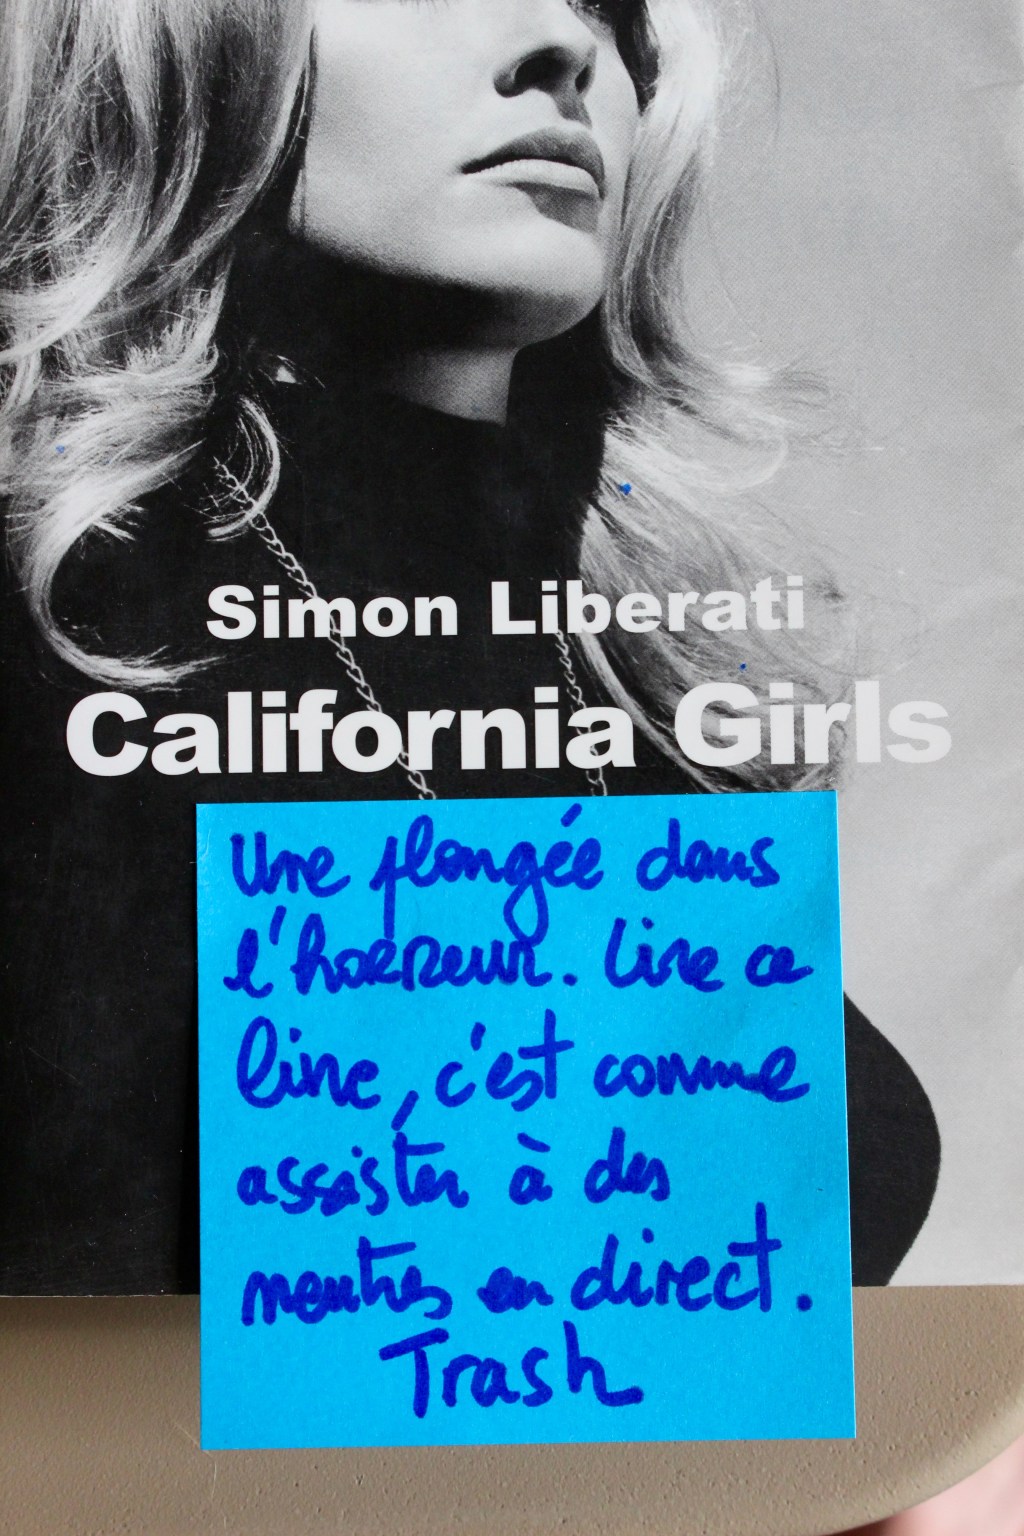 Simon Liberati
California Girls
Une plongée dans
l'horreur. Lire ce
livre, c'est comme
assister à des
meutres en direct.
Trash